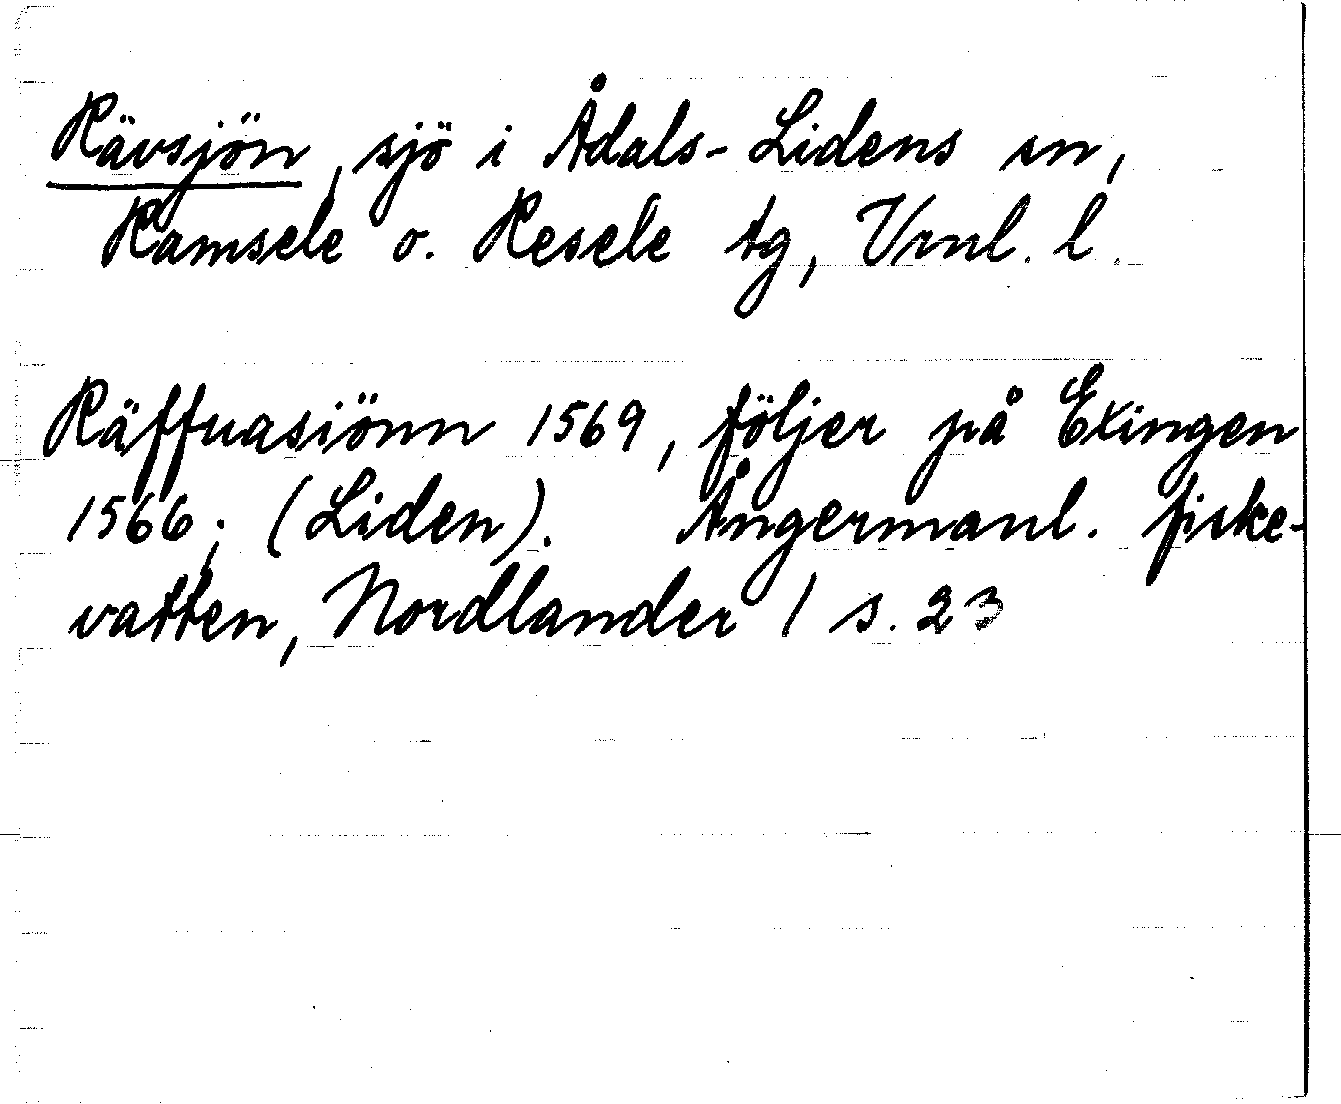 Rävsjön, sjö i Ådals-Lidens sn,
Ramsele o. Resele tg, Vrnl. l.
Räffuasiönn 1569, följer på Exingen
1566; (Liden). Ångermanl. fiske-
vatten, Nordlander / s. 23